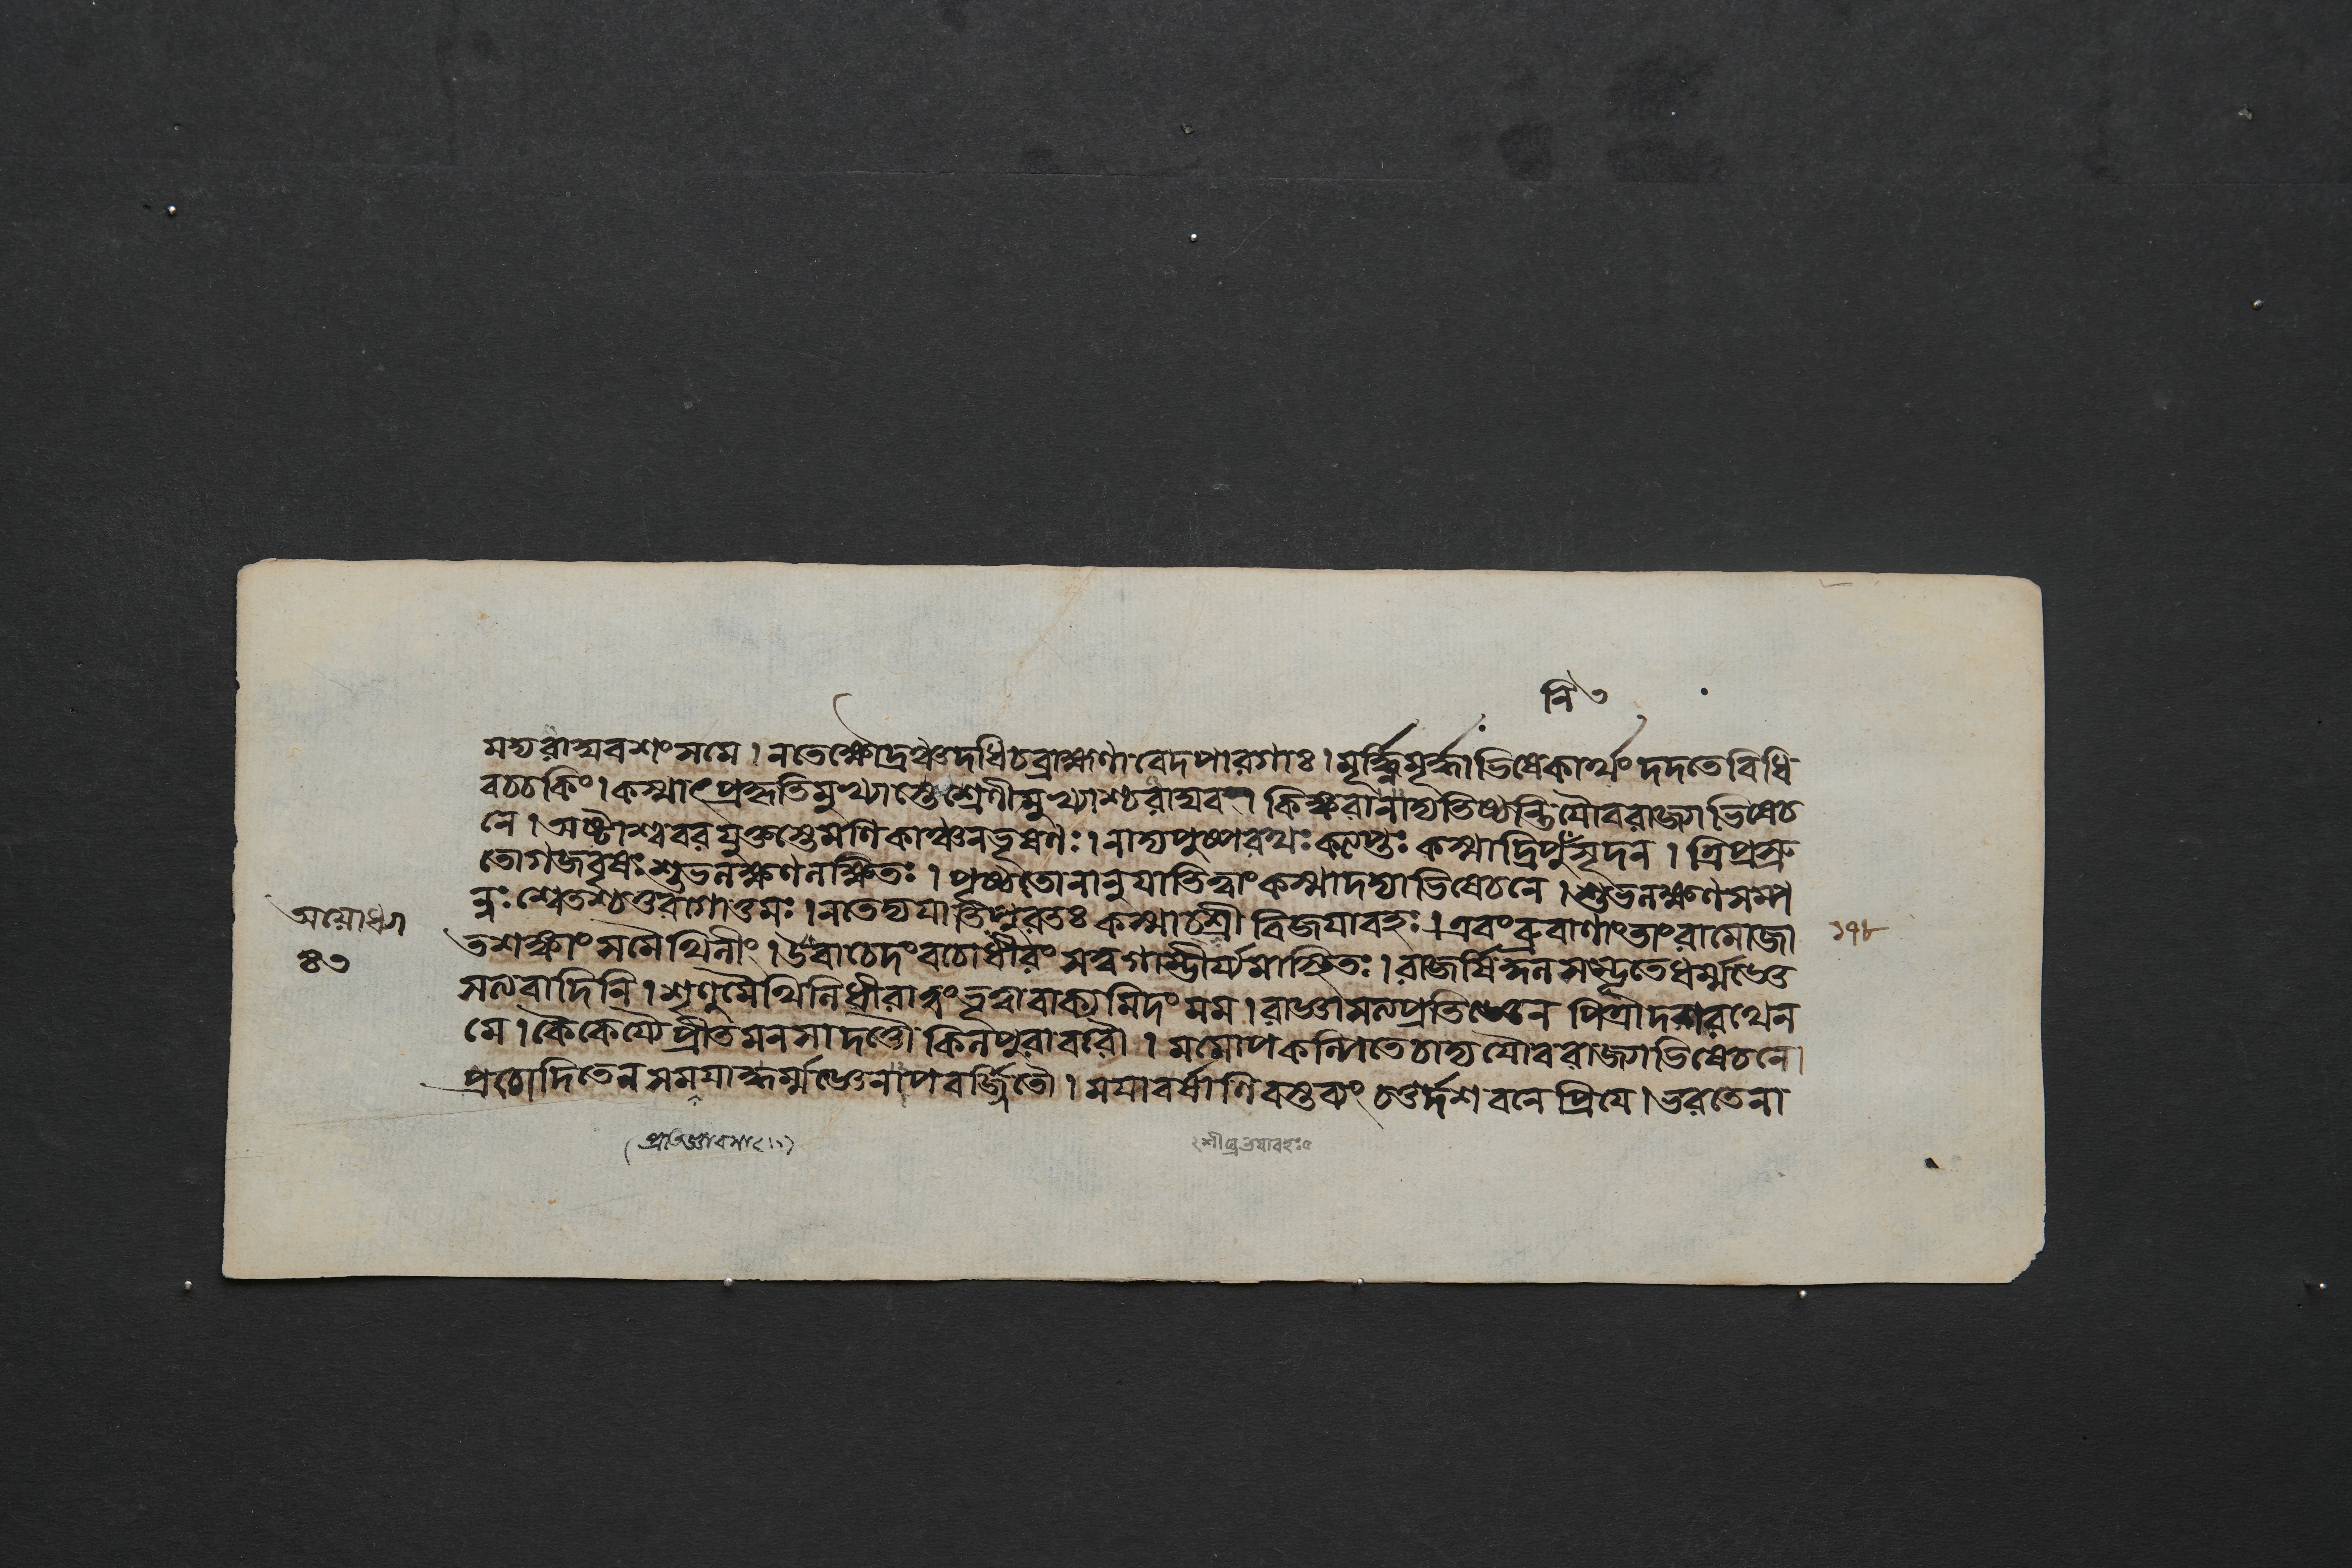 নি৩
মদ্যরাঘবশংসমে । নতেক্ষৌদ্রঞ্চদধিচব্রাহ্মণা বেদপারগাঃ । মূর্দ্ধ্নিমূর্দ্ধাভিষেকার্থং দদতেবিধি
বচ্চকিং । কস্মাৎপ্রকৃতিমুখ্যাস্তেশ্রেণীমুখ্যাশ্চরাঘব । কিঙ্করানাদ্যতিষ্ঠন্তিযৌবরাজ্যাভিষেচ
নে । অষ্টাশ্ববরযুক্তস্তেমণিকাঞ্চনভূষণঃ । নাদ্যপুষ্পরথঃকল্পঃ কস্মাদ্রিপুসূদন । ত্রিপ্রস্রু
তোগজবৃষঃশুভলক্ষণলক্ষিতঃ । পৃষ্ঠতোনানুযাতিত্বাংকস্মাদদ্যাভিষেচনে । শুভলক্ষণসম্প
ন্নঃশ্বেতশ্চতুরগোত্তমঃ । নতেদ্যযাতিপুরতঃ কস্মাচ্চশ্রী বিজয়াবহঃ । এবংব্রুবাণাংতাংরামোজা
তশঙ্কাংসমৈথিলীং । উবাচেদংবচোধীরং সত্বগাম্ভীর্য্যমাস্থিতঃ । রাজর্ষিকুলসম্ভূতেধর্ম্মজ্ঞে
সত্যবাদিনি । শৃণুমৈথিলিধীরাত্বংভূত্বাবাক্যমিদং মম । রাজ্ঞাসত্যপ্রতিজ্ঞেন পিত্রাদশরথেন
মে । কৈকেয্যৈপ্রীতমনসা দত্তৌ কিলপুরাবরৌ । মমোপকল্পিতেচাদ্য যৌবরাজ্যাভিষেচনে
প্রচোদিতেনসময়াদ্ধর্ম্মজ্ঞেনাপবর্জ্জিতৌ । ময়াবর্ষাণিবস্তব্যং চতুর্দশ বনে প্রিয়ে । ভরতেনা
অযোধ্যা
৪৩
১৭৮